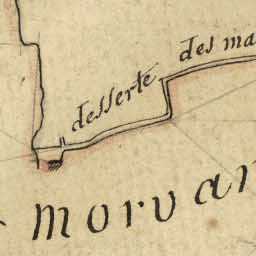 desserté des ma
morvan